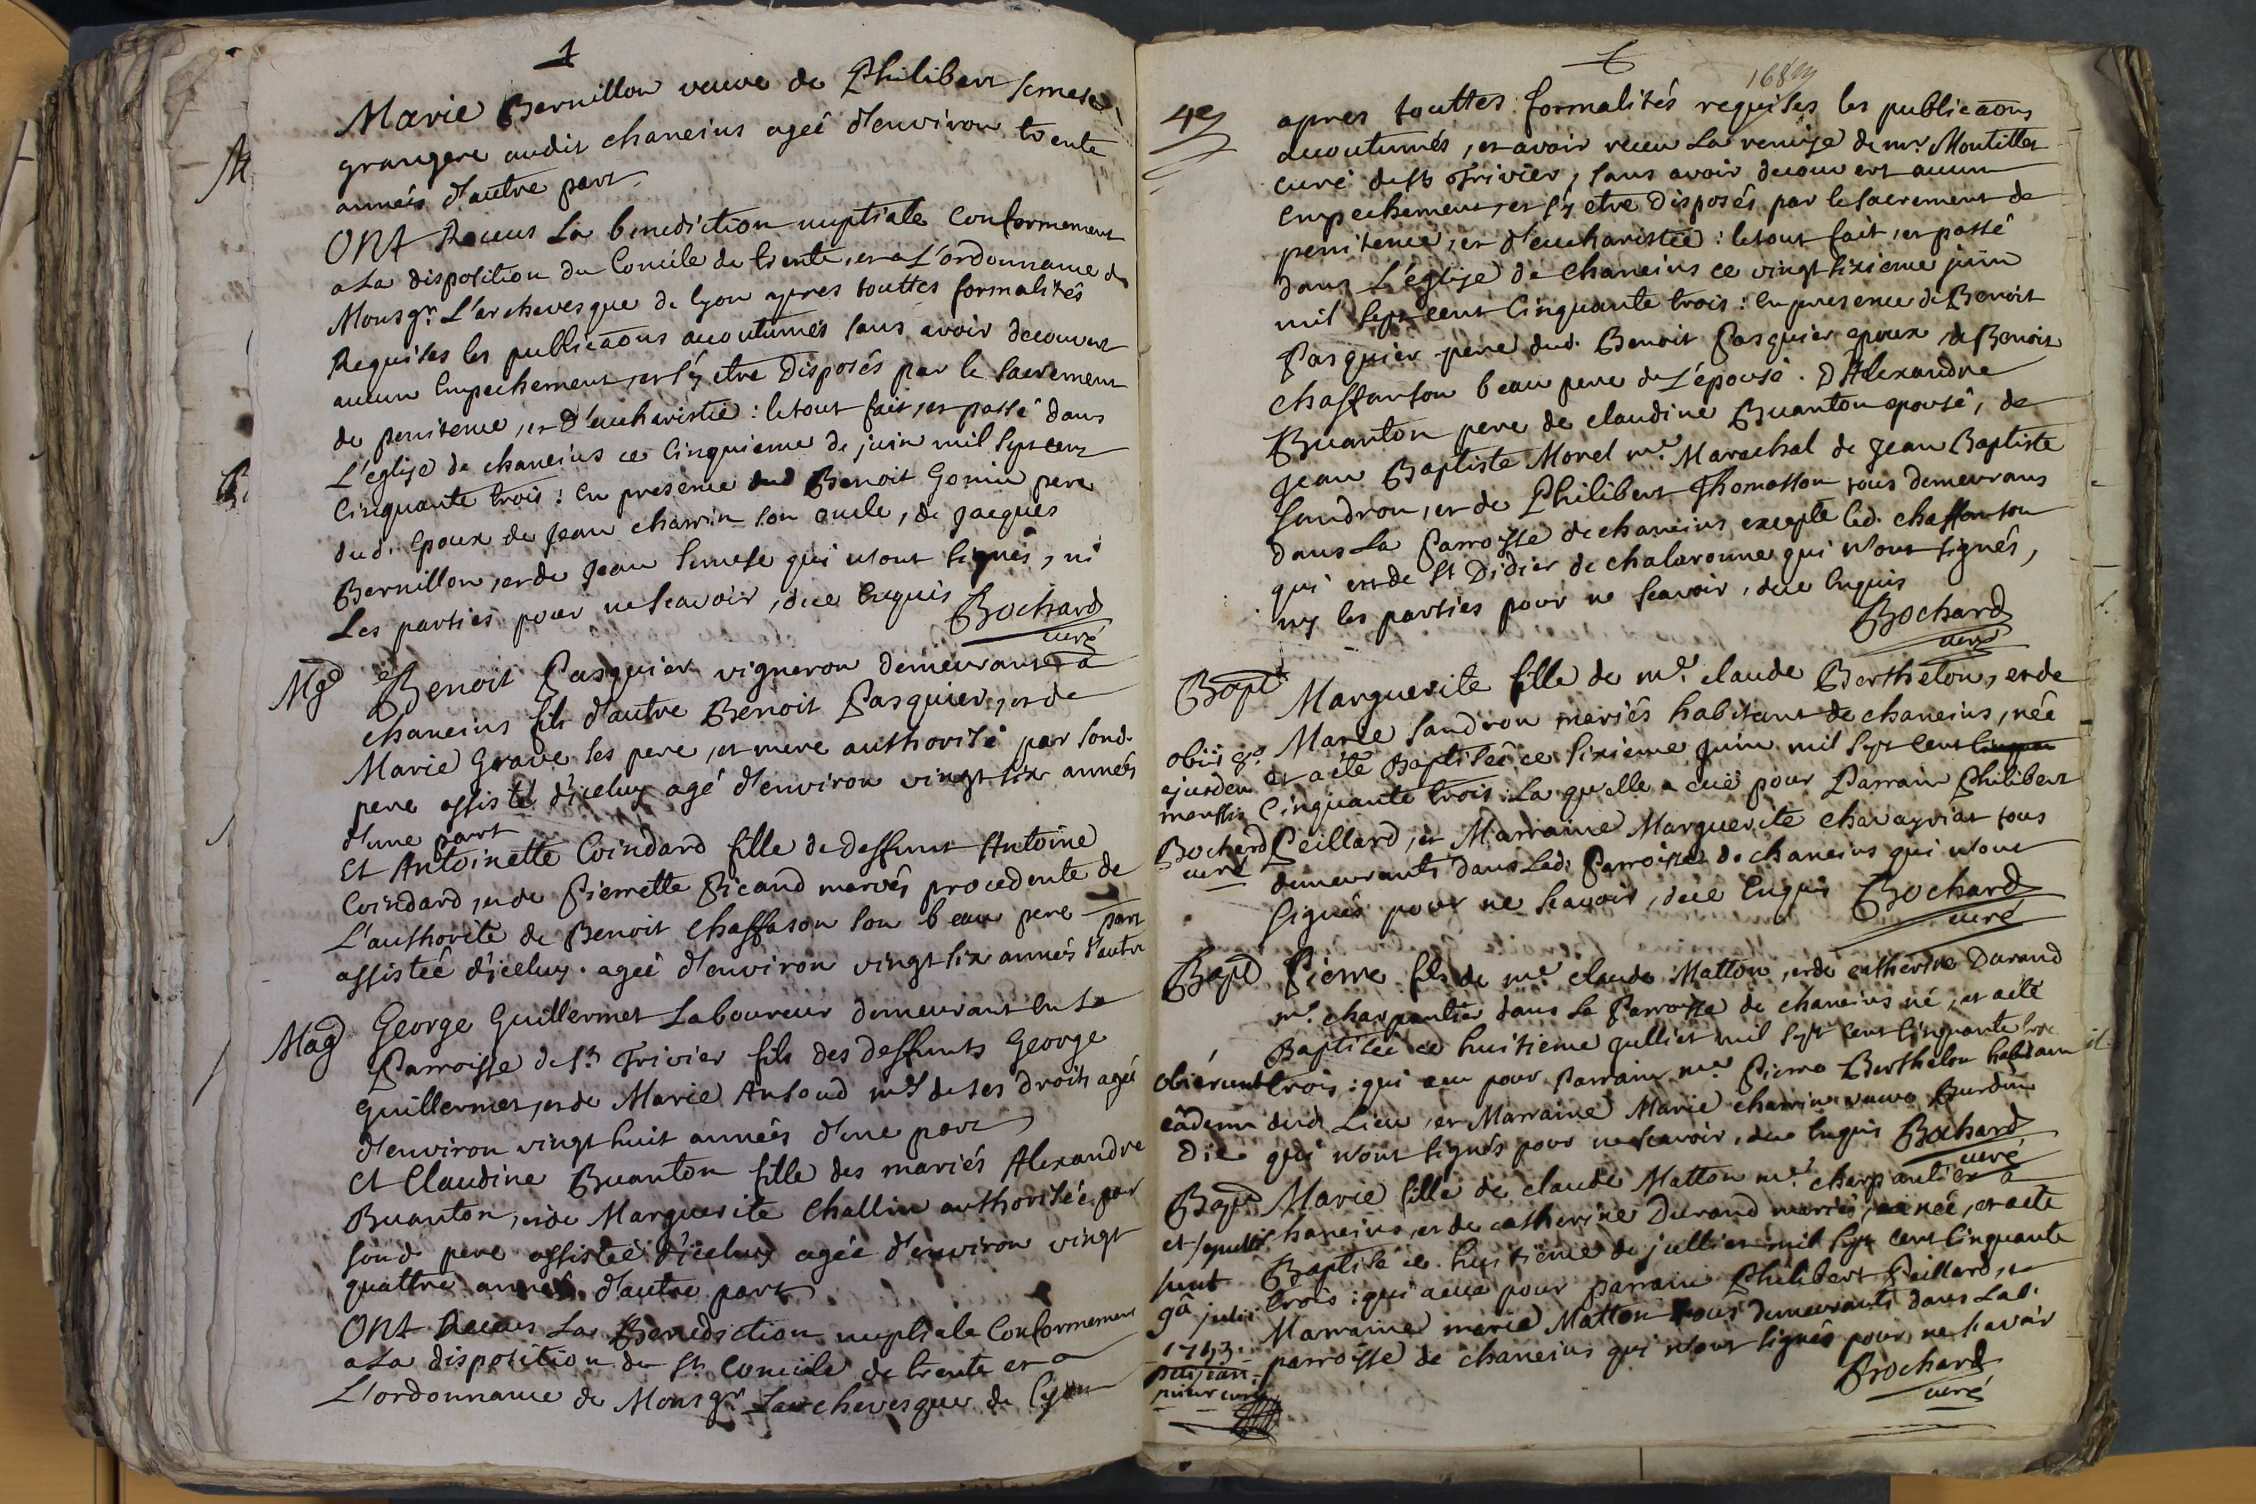 1
Marie Bernillon veuve de Philibert
grangere audit chaneins ageé d'environ trente
années d'autre part
ONt Receus La benediction nuptiale Conformement
a La disposition du Concile de trente, et a L'ordonnance de
Monsgr. L'archevesque de lyon apres touttes formalités
Requises les publicãons acoutumés sans avoir decouvert
aucun Empechement, et s'y etre Disposés par le sacrement
de penitence, et D'eucharistie : letout fait, et passé dans
L'eglise de chaneins ce Cinquieme de juin mil sept cent
Cinquante trois : En presence dud Benoit Gonin pere
dud. Epoux de Jean charvin son oncle, de Jacques
Bernillon, et de Jean qui n'ont signés, ni
Les parties pour ne scavoir, de ce Enquis Bochard
curé
Mgd Benoit Pasquier vigneron demeurant a
chaneins fils d'autre Benoit Pasquier, et de
Marie Grave ses pere, et mere authorisé par sond.
pere assisté d'iceluy agé d'environ vingt six années
d'une part
Et Antoinette Coindard fille de deffunt Antoine
Coindard, et de Pierrette Picand mariés procedente de
L'authorité de Benoit chaffason son beau pere
assisteé d'iceluy. ageé d'environ vingt six années d'autre part
Mag George Guillermet Laboureur demeurant en la
Parroisse de St. Trivier fils des deffunts George
Guillermet, et de Marie Ansoud mr. de ses Droits agé
d'environ vingt huit années d'une part
Et Claudine Buanton fille des mariés Alexandre
Buanton, et de Marguerite Challin authorisée par
sond. pere assisteé d'iceluy agée d'environ vingt
quattre années d'autre part
ONt Receus La Benediction nuptiale Conformement
a La disposition du St. Concile de trente et a
L'ordonnance de Monsgr. Larchevesque de lyon
168
4e
apres touttes formalités requises les publicãons
acoutumés, et avoir receu La remise de mr. Montillet
curé de St. Trivier, sans avoir decouvert aucun
Empechement, et s'y etre Disposés par le sacrement de
penitence, et d'eucharistie : le tout fait, et passé
dans L'église de chaneins ce vingt sixieme juin
mil sept cent Cinquante trois : En presence de Benoit
Pasquier pere dud. Benoit Pasquier epoux de Benoit
Chaffanson beau pere de L'épouse. D'Alexandre
Buanton pere de claudine Buanton epouse, de
Jean Baptiste Morel me. Marechal de Jean Baptiste
Sandron, et de Philibert Thomasson tous demeurans
dans La Parroisse de chaneins excepté led. chaffanson
qui est de St Didier de chalaronne qui n'ont signés,
ny les parties pour ne scavoir, de ce Enquis
Bochard
curé
Bapt Marguerite fille de me. claude Berthelon, et de
Marie Sandron mariés habitant de chaneins, née
et a eté Baptiseé ce sixieme Juin mil sept cent
Cinquante trois : La quelle a eue pour Parrain Philibert
Peillard, et Marraine Marguerite chavayriat tous
demeurants dans Lad. Parroisse de chaneins qui n'ont
signés pour ne scavoir, de ce Enquis Bochard
curé
obiit
ejusdem
mensis
Bochard
curé
Bapt Pierre fils de me. claude Matton, et de catherine Durand
me. charpantier dans La Parroisse de chaneins né, et a eté
Baptisée ce huitieme jullict mil sept cent Cinquante
trois : qui a eu pour Parrain me. Pierre Berthelon habitant
dud. Lieu, et Marraine Marie charvin veuve Burdin
qui n'ont signés pour ne scavoir, de ce Enquis Bochard
curé
obierunt
eâdem
Die
Bapt Marie fille de claude Matton me. charpantier a
chaneins, et de catherine Durand mariés, née, et a eté
Baptisé ce huitieme de jullict mil sept cent Cinquante
trois : qui a eue pour parrain Philibert Peillard, et
Marraine marie Matton tous demeurants dans Lad.
parroisse de chaneins qui n'ont signés pour ne scavoir
Brochard
curé
et sepulti
sunt
9â julii
1753